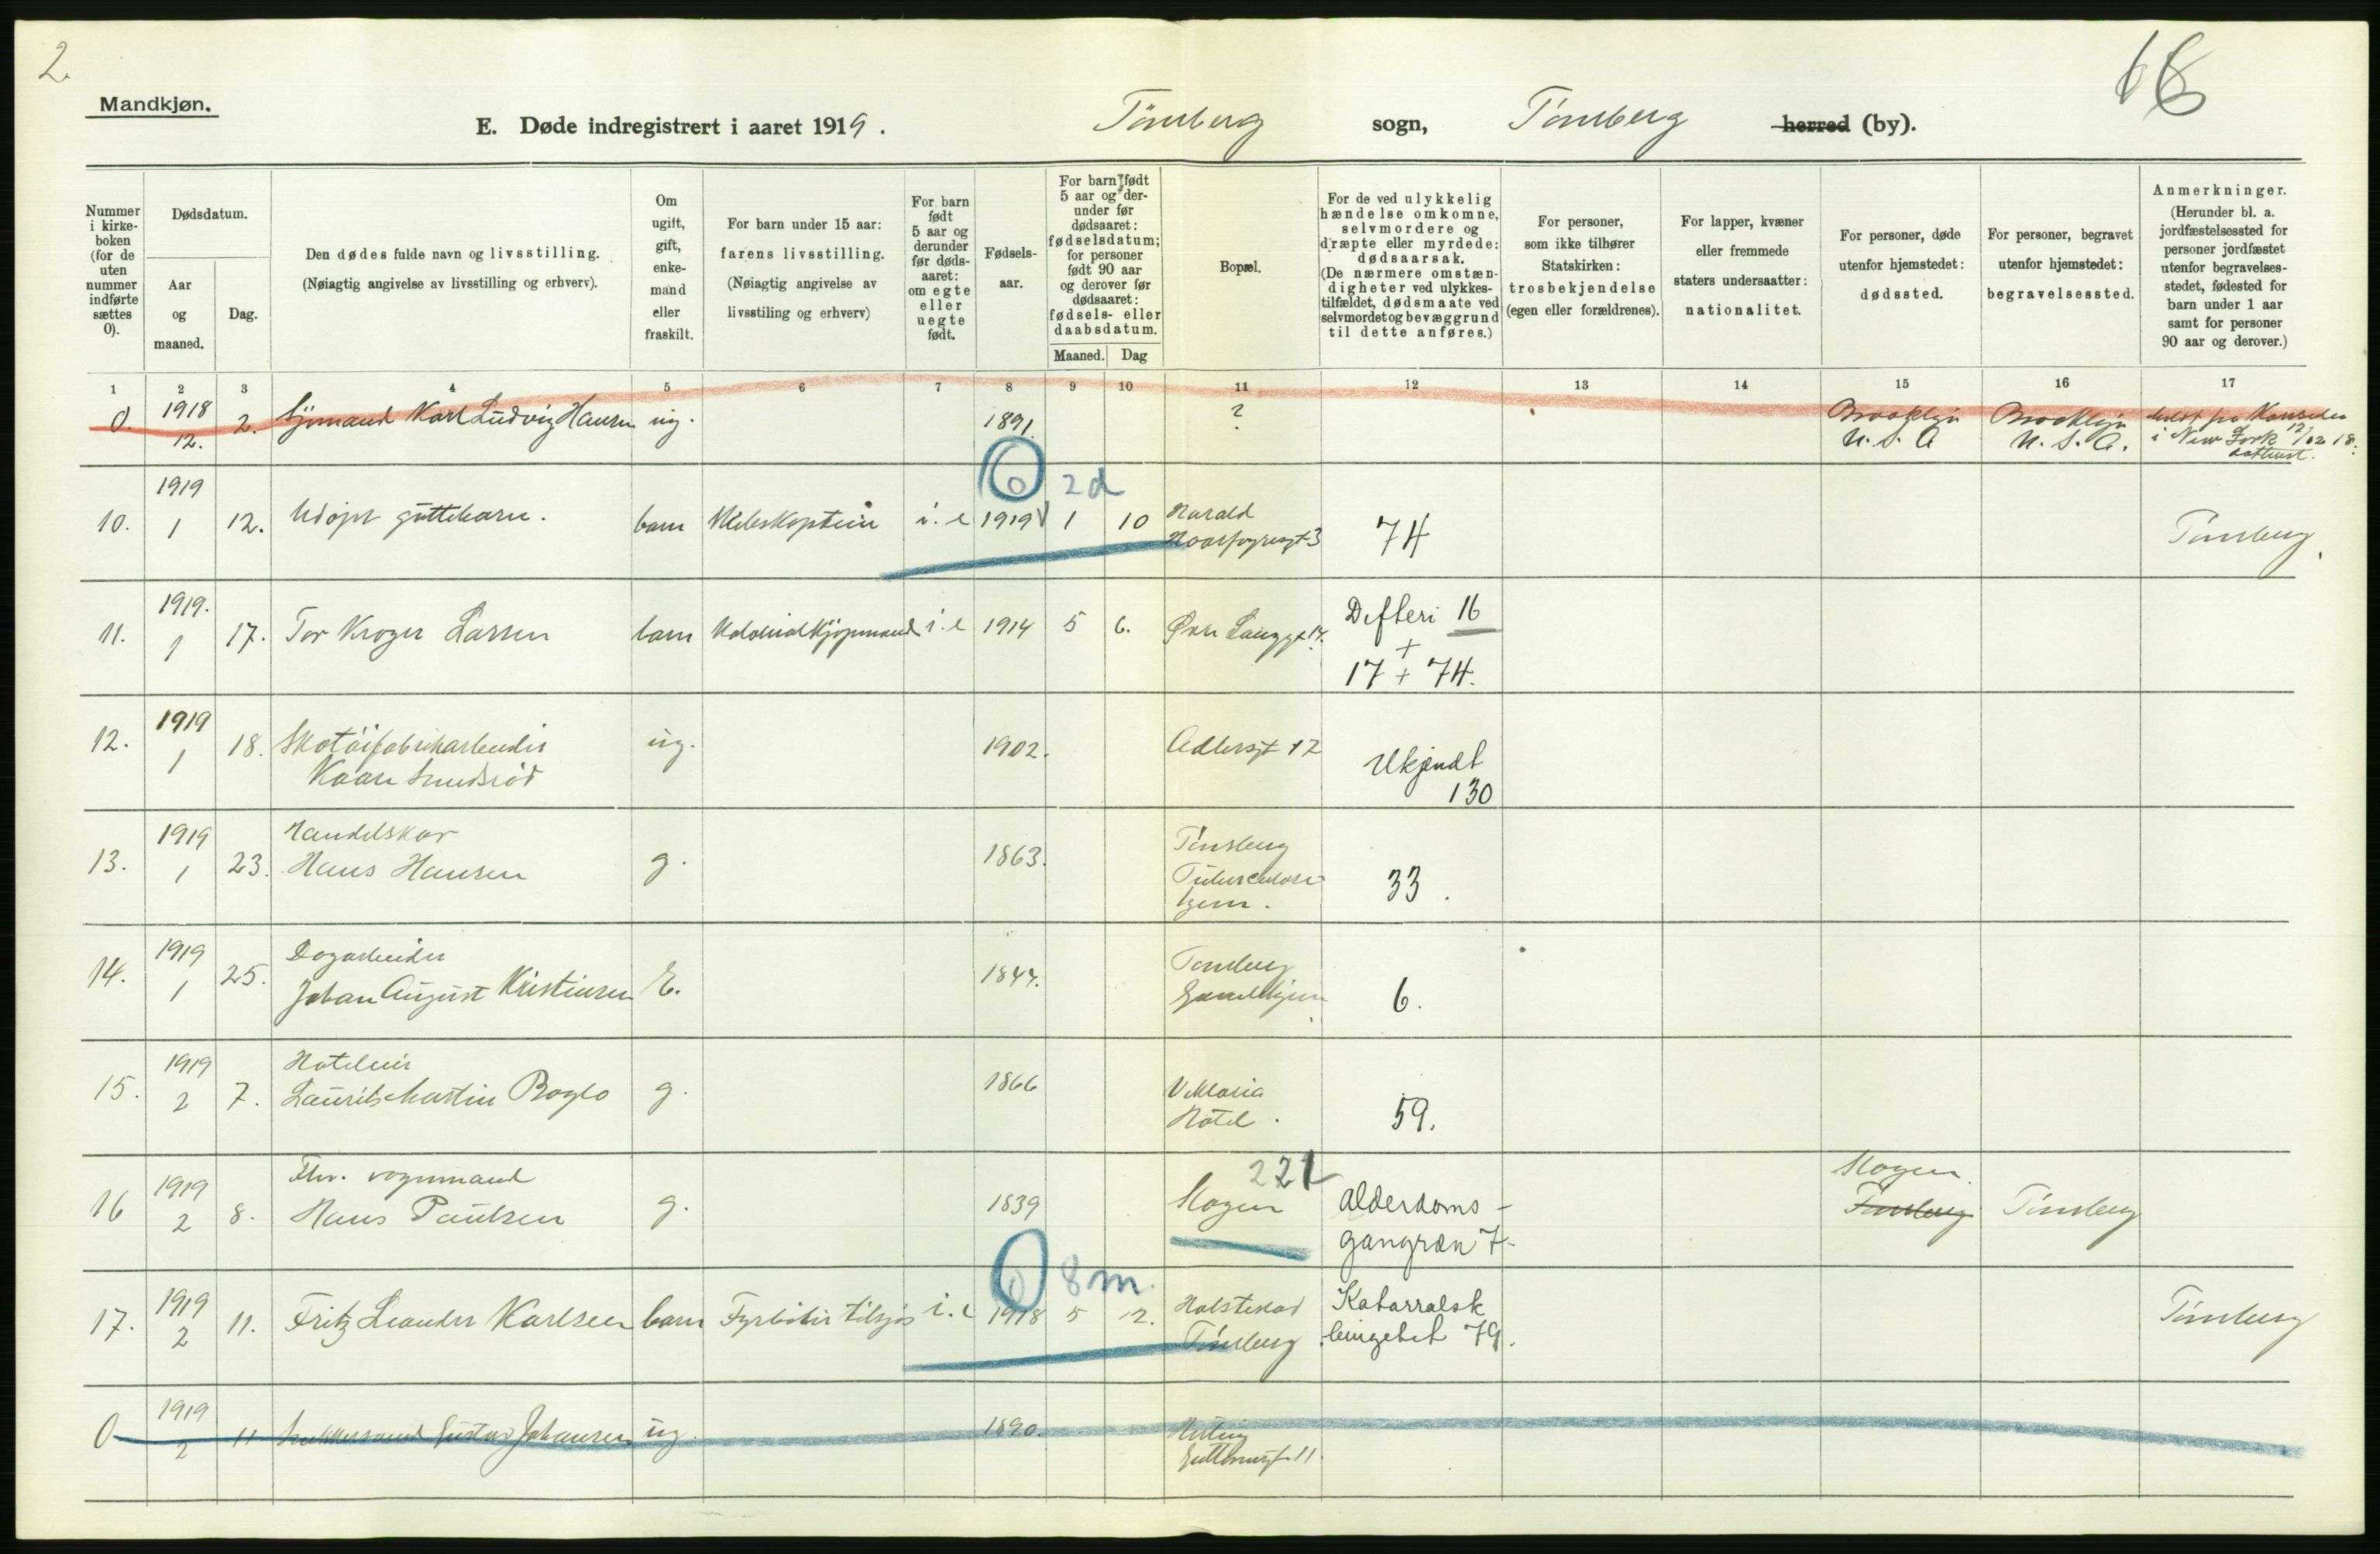 2.
68
Mandkjøn.
E. Døde indregistrert i aaret 1919. Tönsberg sogn, Tönsberg herred (by).
Nummer i kirkeboken (for de uten nummer indførte sættes 0).
Dødsdatum.
Aar og maaned.
Dag.
Den dødes fulde navn og livsstilling.
(Nøiagtig angivelse av livsstilling og erhverv).
Om ugift, gift, enkemand eller fraskilt.
For barn under 15 aar: farens livsstilling.
(Nøiagtig angivelse av livsstiling og erhverv)
For barn født 5 aar og derunder før dødsaaret: om egte eller uegte født.
Fødselsaar.
For barn født 5 aar og derunder før dødsaaret: fødselsdatum; for personer født 90 aar og derover før dødsaaret: fødsels- eller daabsdatum.
Maaned. Dag
Bopæl.
For de ved ulykkelig hændelse omkomne, selvmordere og dræpte eller myrdede: dødsaarsak.
(De nærmere omstændigheter ved ulykkestilfældet, dødsmaate ved selvmordet og bevæggrund til dette anføres.)
For personer, som ikke tilhører Statskirken: trosbekjendelse (egen eller forældrenes).
For lapper, kvæner eller fremmede staters undersaatter: nationalitet.
For personer, døde utenfor hjemstedet: dødssted.
For personer, begravet utenfor hjemstedet: begravelsessted.
Anmerkninger.
(Herunder bl. a. jordfæstelsessted for personer jordfæstet utenfor begravelsesstedet, fødested for barn under 1 aar samt for personer 90 aar og derover.)
1 2 3 4 5 6 7 8 9 10 11 12 13 14 15 16 17
0. 1918 12. 2. Sjömand Karl Ludvig Hansen ug. 1891. ? Brooklyn U. S. A Brooklyn U. S. A. i New York 12/12 18.
10. 1919 1 12. Udöpt guttebarn. barn i. e 1919 1 10 Harald Haarfagresgt 3 74 Tönsberg.
0 2d
11. 1919. 1 17. Tor Kroger Larsen barn Kolonialkjöpmand i. e 1914 5 6. Øvre Langgt 14. Difteri 16 + 17 + 74.
12. 1919 1 18. Skotöifabrikarbeider Kaare Smedsröd ug. 1902. Adlersgt 12 Ukjendt 130
13. 1919 1 23. Handelskar Hans Hansen g. 1863. Tönsberg Tuberculosehjem. 33.
14. 1919 1 25. Dagarbeider Johan August Kristiansen E. 1844. Tönsberg Gamlehjem 6.
15. 1919 2 7. Hoteleier Laurits Martin Boglo g. 1866 Viktoria Hotel. 59.
16 1919 2 8. Fhv. vognmand Hans Paulsen g. 1839 Skogen 221 Alderdoms-gangræn 7- Skogen Tönsberg Tönsberg
17. 1919 2 11. Fritz Leander Karlsen barn Fyrböter tilsjös i. e 1918 5 12. Tönsberg Katarralsk lungebet 79. Tönsberg
0 8 m.
0 1919 2 11 Gustav Johansen ug. 1890.